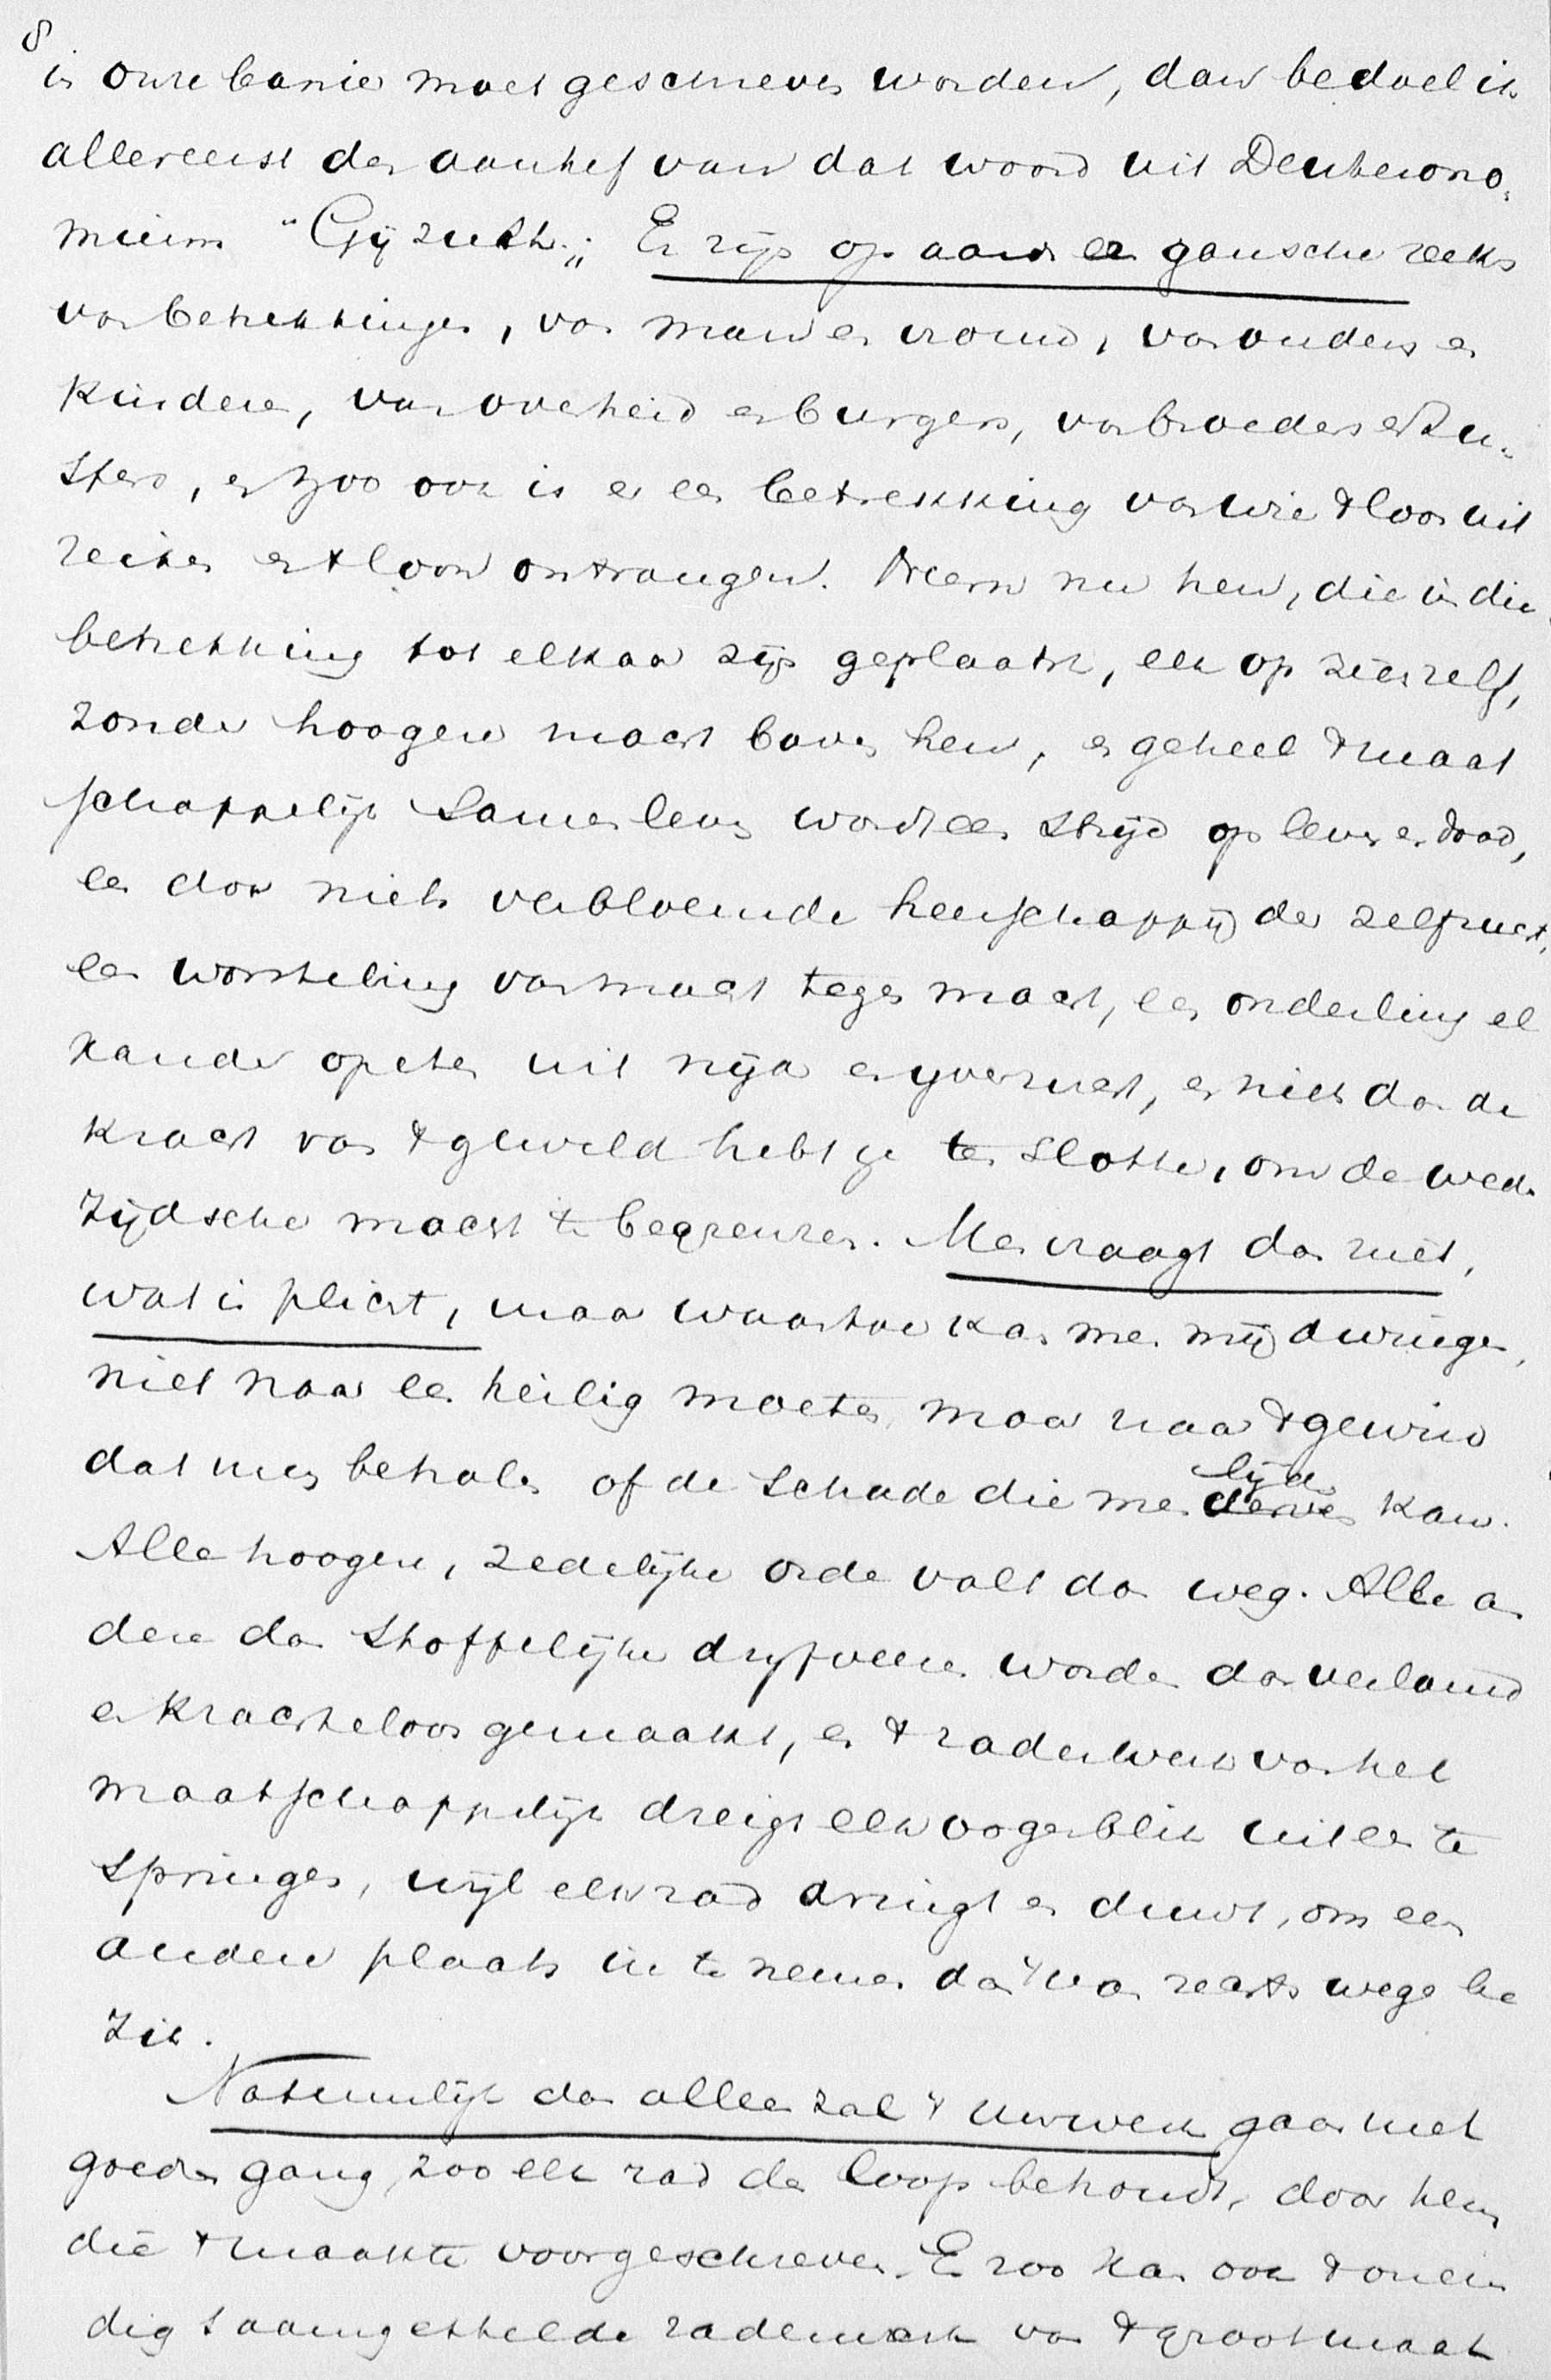 8
in onze banier moet geschreven worden, dan bedoel ik
allereerst den aanhef van dat woord uit Deuterono-
mium "Gij zult." Er zijn op aard een gansche reeks
van betrekkingen, van man en vrouw, van ouders en
kinderen, van overheid en burgers, van broeders en zu-
sters, en zoo ook is er een betrekking van wie 't loon uit
reiken en 't loon ontvangen. Neem nu hen, die in die
betrekking tot elkaar zijn geplaatst, elk op zichzelf,
zonder hoogere macht boven hen, en geheel 't maat
schappelijk samenleven wordt een strijd op leven en dood,
een door niets verbloemde heerschappij der zelfzucht,
een worsteling van macht tegen macht, een onderling el
kander opeten uit nijd en ijverzucht, en niets dan de
kracht van 't geweld hebt ge ten slotte, om de weder
zijdsche macht te begrenzen. Men vraagt dan niet,
wat is plicht, maar waartoe kan men mij dwingen,
niet naar een heilig moeten, maar naar 't gewin
dat men behalen of de schade die men derven lijden kan.
Alle hoogere, zedelijke orde valt dan weg. Alle an
dere dan stoffelijke drijfveeren worden dan verlamd
en krachteloos gemaakt, en 't raderwerk van het
maatschappelijk dreigt elk oogenblik uiteen te
springen, wijl elk rad dringt en duwt, om een
andere plaats in te nemen dan 't van rechts wege be
zit.
Natuurlijk dan alleen zal 't uurwerk gaan met
goeden gang, zoo elk rad den loop behoudt, door hem
die 't maakte voorgeschreven. En zoo kan ook 't onein
dig saamgestelde raderwerk van 't groot maat